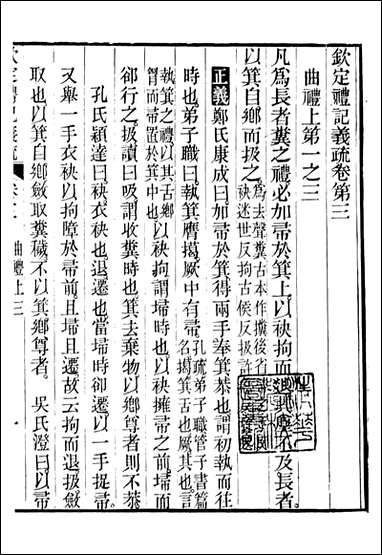 欽定禮記義疏卷第三
曲禮上第一之三
凡爲長者糞之禮必加帚於箕上以袂拘而退其塵不及長者
以箕自鄉而扱之爲去聲糞古本作㩎後省
袂述世反拘古侯反扱許
正義鄭氏康成曰加帚於箕得兩手奉箕恭也謂初執而往
時也弟子職曰執箕膺擖厥中有帚孔疏弟子職管子書篇
名擖箕舌也厥其也言
執箕之禮以其舌鄉
胷而帚置於箕中也以袂拘謂埽時也以袂擁帚之前埽而
卻行之扱讀曰吸謂收糞時也箕去棄物以鄉尊者則不恭
孔氏穎達曰袂衣袂也退遷也當埽時卻遷以一手捉帚
又舉一手衣袂以拘障於帚前且埽且遷故云拘而退扱斂
取也以箕自鄉斂取糞穢不以箕鄉尊者　吳氏澄曰以帚
欽定禮記義疏
曲禮上三